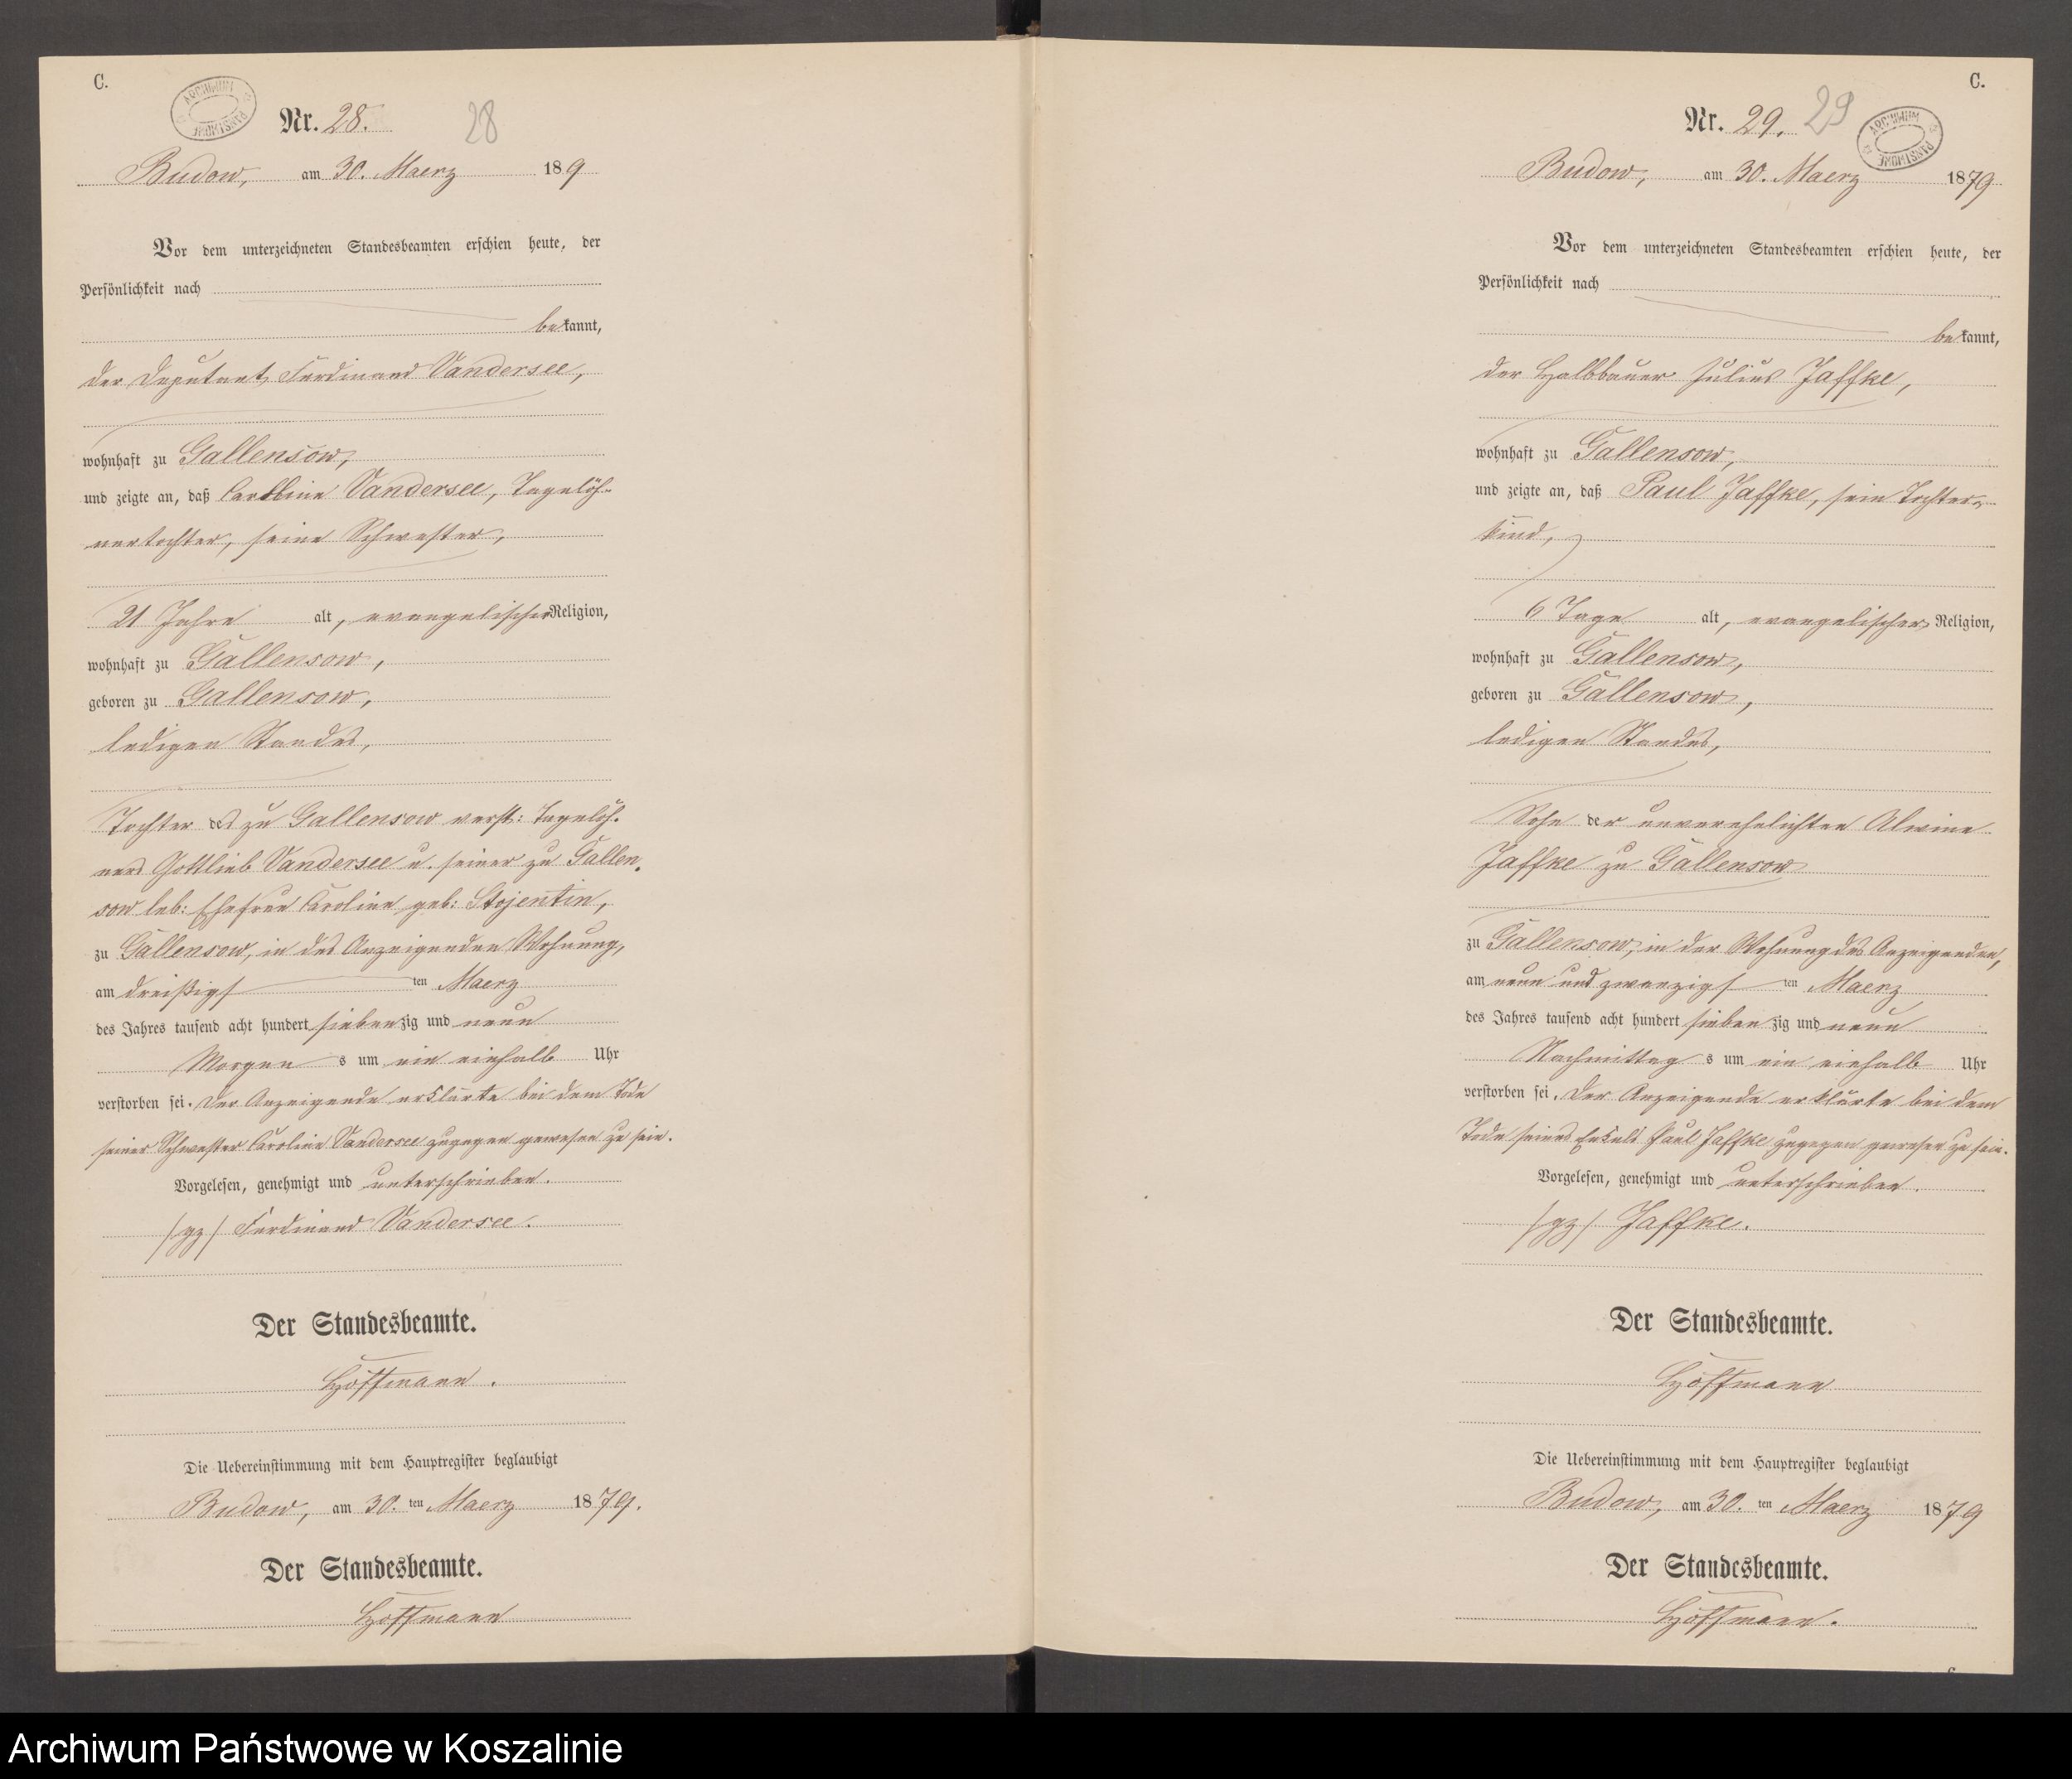 C.
ARCHIWUM PAŃSTWOWE
Nr. 28.
28
Budow, am 30. Maerz 189
Vor dem unterzeichneten Standesbeamten erschien heute, der
Persönlichkeit nach
bekannt,
der Deputant Ferdinand Vandersee,
wohnhaft zu Gallensow,
und zeigte an, daß Caroline Vandersee, Tagelöh-
nertochter, seine Schwester,
21 Jahre alt, evangelischer Religion,
wohnhaft zu Gallensow,
geboren zu Gallensow,
ledigen Standes,
Tochter des zu Gallensow verst: Tagelöh-
ners Gottlieb Vandersee u. seiner zu Gallen-
sow leb: Ehefrau Caroline geb: Stojentin,
zu Gallensow, in des Anzeigenden Wohnung,
am dreißigsten Maerz
des Jahres tausend acht hundert siebenzig und neun
Morgens um ein einhalb Uhr
verstorben sei. Der Anzeigende erklärte bei dem Tode
seiner Schwester Caroline Vandersee zugegen gewesen zu sein.
Vorgelesen, genehmigt und unterschrieben.
/gz/ Ferdinand Vandersee.
Der Standesbeamte.
Hoffmann.
Die Uebereinstimmung mit dem Hauptregister beglaubigt
Budow, am 30. ten Maerz 1879.
Der Standesbeamte.
Hoffmann
C.
Nr. 29.
29
ARCHIWUM PAŃSTWOWE
Budow, am 30. Maerz 1879
Vor dem unterzeichneten Standesbeamten erschien heute, der
Persönlichkeit nach
bekannt,
der Halbbauer Julius Jaffke,
wohnhaft zu Gallensow,
und zeigte an, daß Paul Jaffke, sein Tochter-
kind,
6 Tage alt, evangelischer Religion,
wohnhaft zu Gallensow,
geboren zu Gallensow,
ledigen Standes,
Sohn der unverehelichten Alwine
Jaffke zu Gallensow
zu Gallensow, in der Wohnung des Anzeigenden,
am neun und zwanzigsten Maerz
des Jahres tausend acht hundert siebenzig und neun
Nachmittags um ein einhalb Uhr
verstorben sei. Der Anzeigende erklärte bei dem
Tode seines Enkels Paul Jaffke zugegen gewesen zu sein.
Vorgelesen, genehmigt und unterschrieben.
/gz/ Jaffke.
Der Standesbeamte.
Hoffmann
Die Uebereinstimmung mit dem Hauptregister beglaubigt
Budow, am 30. ten Maerz 1879
Der Standesbeamte.
Hoffmann.
Archiwum Państwowe w Koszalinie